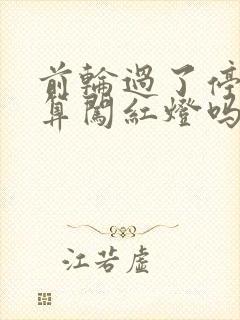 前輪過了停
算闖紅燈嗎
江若虛